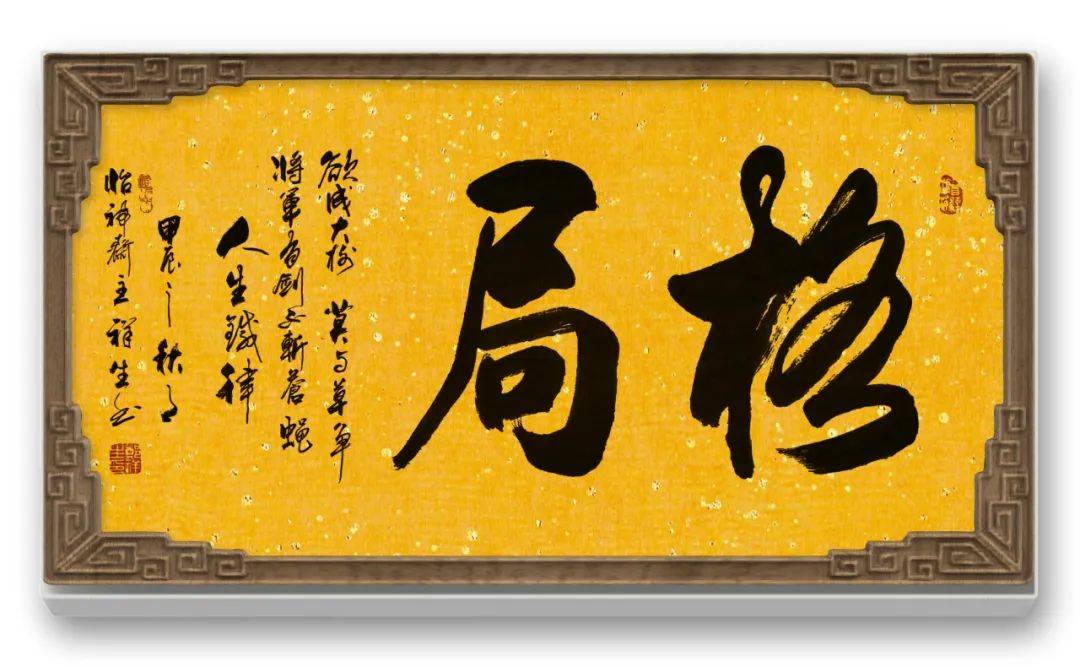 格局
欲成大樹 莫与草争
将軍有劍不斬蒼蠅
人生鐵律
甲辰之秋月
怡神齋主祥生书